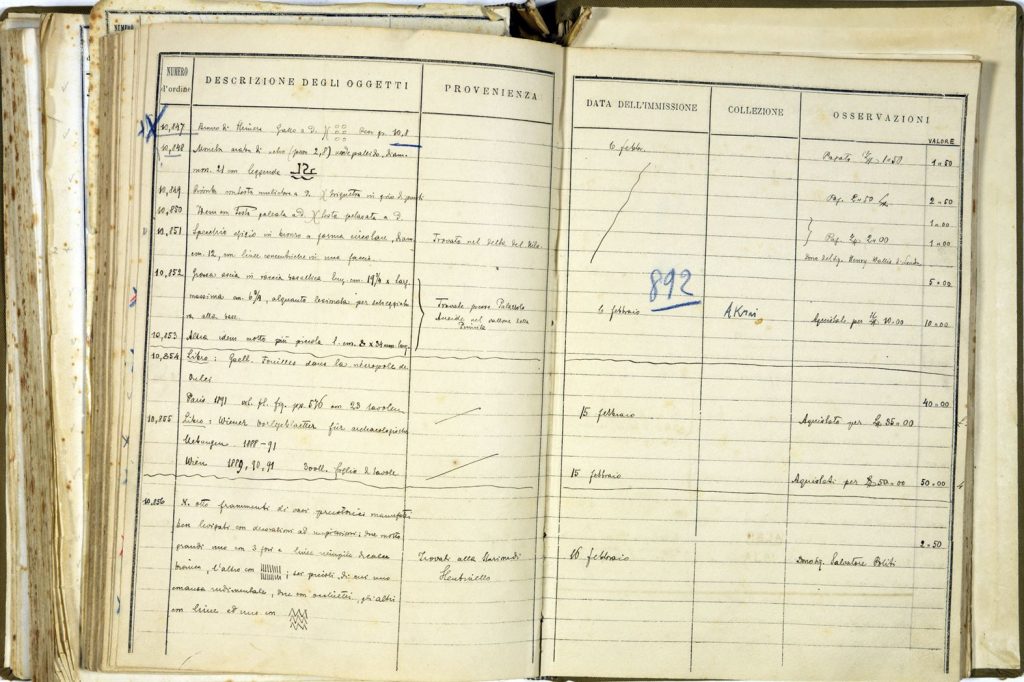 NUMERO
d'ordine
DESCRIZIONE DEGLI OGGETTI
PROVENIENZA
DATA DELL'IMMISSIONE
COLLEZIONE
OSSERVAZIONI
VALORE
10,847 Bronzo di Himera Gallo a D. )( p. 10,8
6 febbr.
Pagato 1=50
1=50
10,848 Moneta araba di vetro (peso 2,8) verde pallido, diam.
mm. 21 con leggenda
10,849 in giro di
Pag. 2=50
2=50
10,850 Idem con Testa galeata a D. )( Testa galeata a D.
1=00
10,851 Specchio in bronzo a forma circolare, diam.
Trovato nel delta del Nilo
Pag. 2=00
1=00
cm. 12, con linee concentriche in una faccia.
Dono del Sig. Henry Wallis di Londra
10,852 Grossa ascia in roccia basaltica lung. cm. 19 ½ larg.
5=00
massima cm. 6 ¾, alquanto lesionata per scheggiatu
ra alla base.
Trovate presso Palazzolo
Acreide nel vallone della
892
6 febbraio
Akrai
Acquistate per 10.00
10=00
10,853 Altra idem molto più piccola
10,854 Libro: Gsell. Fouilles dans la nécropole de
Vulci
Paris 1891 vol. fl. fig. pp. 576 con 23 tavole
15 febbraio
Acquistato per 35=00
40=00
10,855 Libro: Wiener Vorlegeblaetter für archaeologische
Uebungen 1888-91
Wien 1889, 90, 91 3 voll. foglio di tavole
15 febbraio
Acquistati per 50=00
50=00
10,856 N. otto frammenti di vasi preistorici manufatti
2=50
ben levigati con decorazioni ad impressioni; due molto
grandi uno con 3 fori e linee riempite di calce
bianca, l'altro con ; sei piccoli, di cui uno
Trovati alla
Stentinello
16 febbraio
Dono Sig. Salvatore Politi
rudimentale, due con occhietti, gli altri
con linee ed uno con